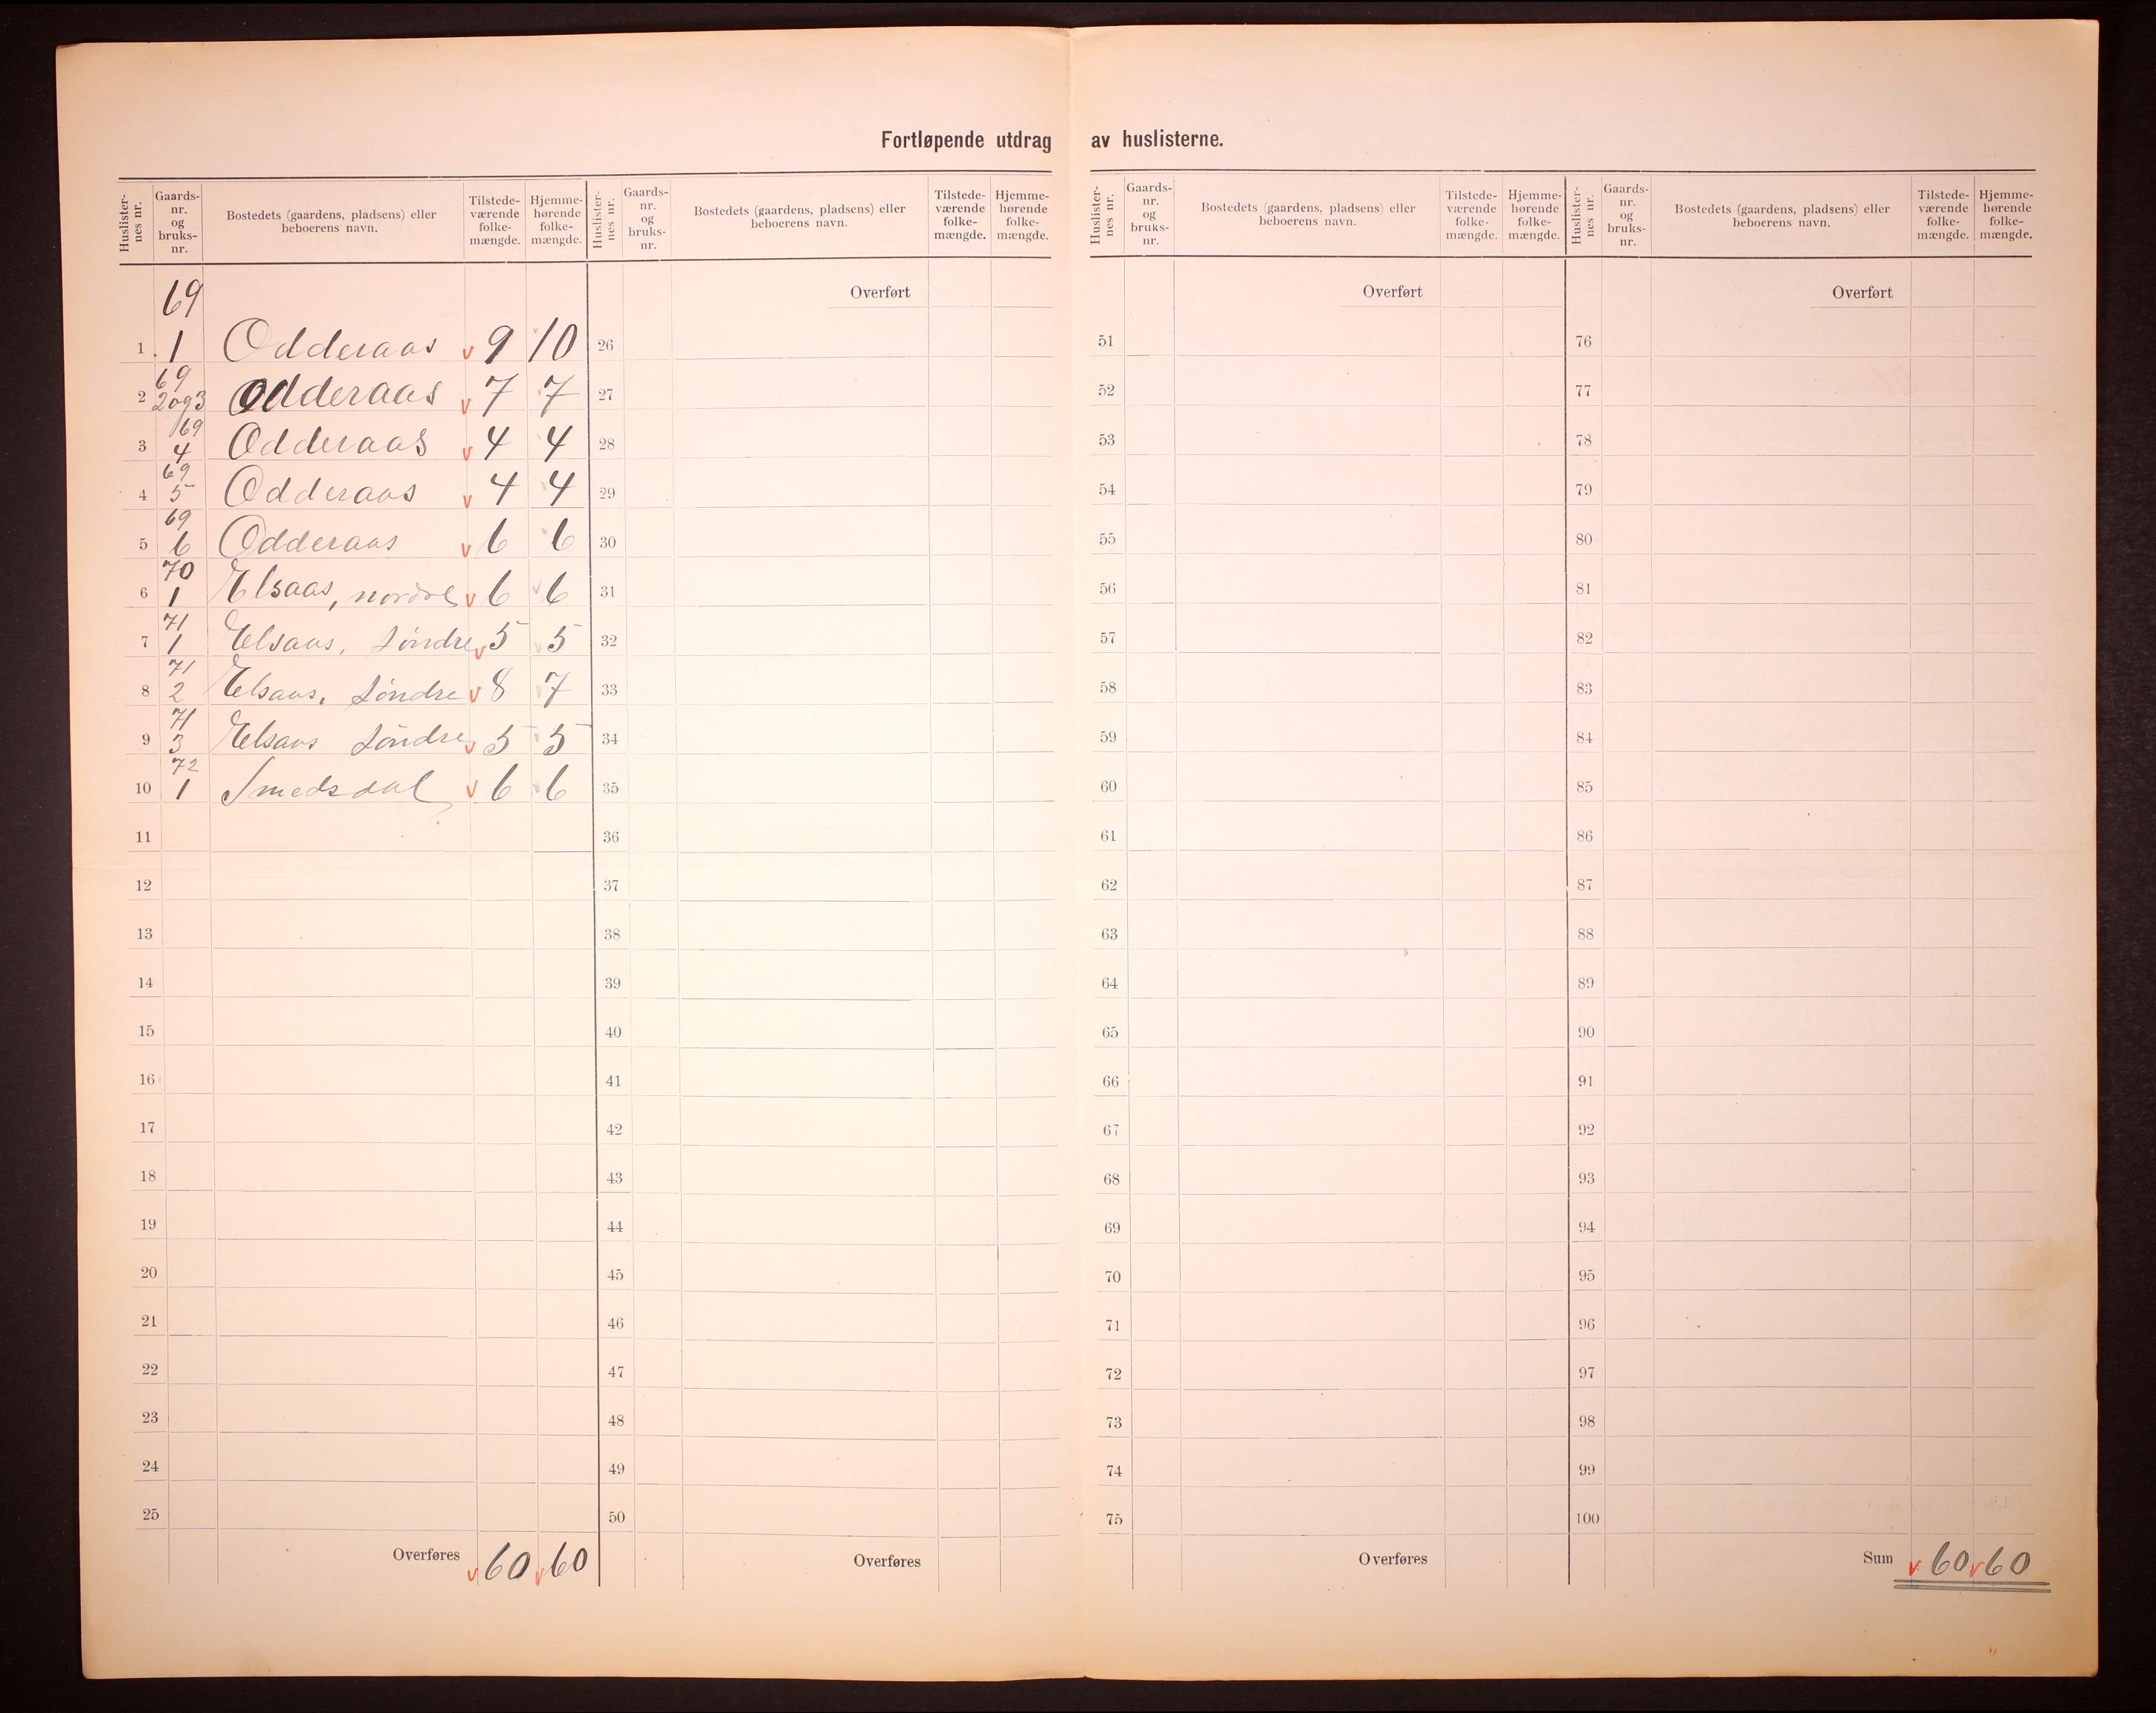 Fortløpende utdrag av huslisterne.
Huslister-nes nr. Gaards-nr. og bruks-nr. Bostedets (gaardens, pladsens) eller beboerens navn. Tilstede-værende folke-mængde. Hjemme-hørende folke-mængde.
69
1 1 Odderaas v 9 10
69
2 2 og 3 Odderaas v 7 7
69
3 4 Odderaas v 4 4
69
4 5 Odderaas v 4 4
69
5 6 Odderaas v 6 6
70
6 1 Elsaas, nordre v 6 6
71
7 1 Elsaas, søndre v 5 5
71
8 2 Elsaas, søndre v 8 7
71
9 3 Elsaas søndre v 5 5
72
10 1 Smedsdal v 6 6
11
12
13
14
15
16
17
18
19
20
21
22
23
24
25
Overføres v 60 v 60
Huslister-nes nr. Gaards-nr. og bruks-nr. Bostedets (gaardens, pladsens) eller beboerens navn. Tilstede-værende folke-mængde. Hjemme-hørende folke-mængde.
Overført
26
27
28
29
30
31
32
33
34
35
36
37
38
39
40
41
42
43
44
45
46
47
48
49
50
Overføres
Huslister-nes nr. Gaards-nr. og bruks-nr. Bostedets (gaardens, pladsens) eller beboerens navn. Tilstede-værende folke-mængde. Hjemme-hørende folke-mængde.
Overført
51
52
53
54
55
56
57
58
59
60
61
62
63
64
65
66
67
68
69
70
71
72
73
74
75
Overføres
Huslister-nes nr. Gaards-nr. og bruks-nr. Bostedets (gaardens, pladsens) eller beboerens navn. Tilstede-værende folke-mængde. Hjemme-hørende folke-mængde.
Overført
76
77
78
79
80
81
82
83
84
85
86
87
88
89
90
91
92
93
94
95
96
97
98
99
100
Sum v 60 v 60